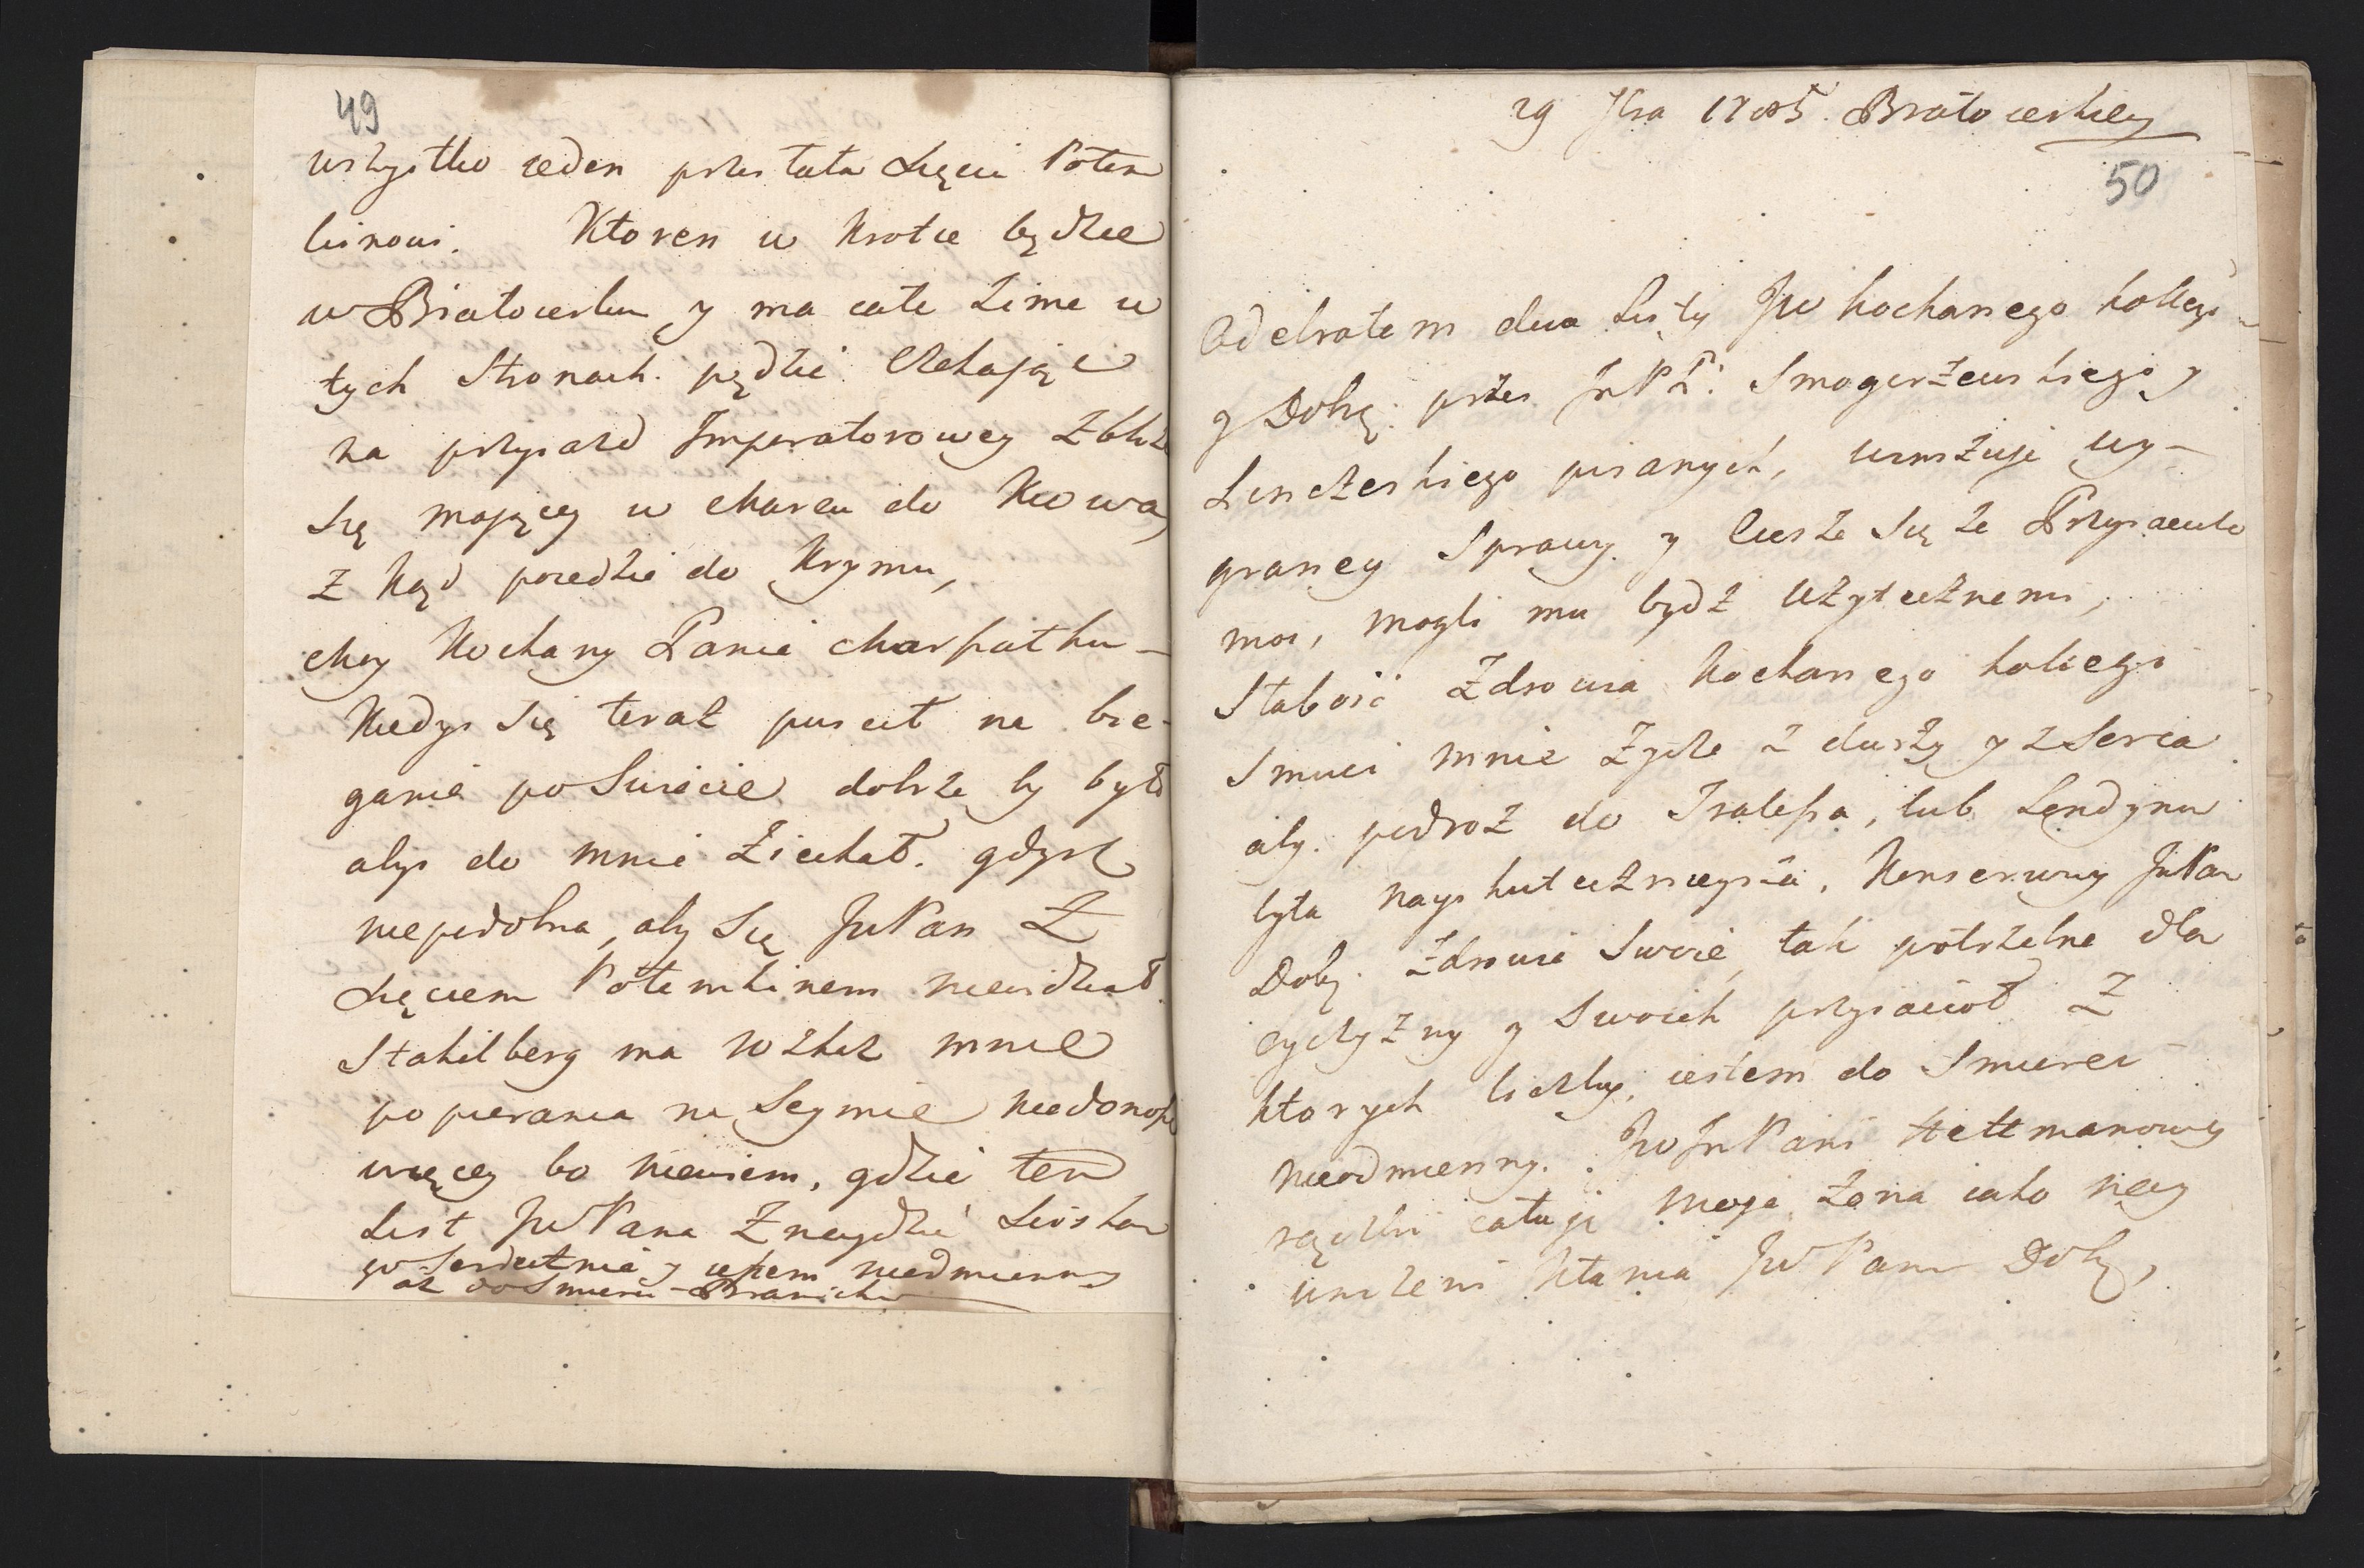 49
wszystko ieden przes tata Xięciu Potem
kinowi. Ktoren w krotce będzie
w Białocerkwi y ma całe zime w
tych Stronach pędzić Czekając
na przyiazd Imperatorowey zbliża
się maiącey w Marcu do Kiiowa,
z kąd poiedzie do Krymu,
Moy Kochany Panie Marszałku –
Kiedyś Się teraz puscił na bie-
ganie po Swiecie dobrze by było
abyś do mnie ziechał. gdysz
niepodobna, aby Się JwPan Z
Xięciem Potemkinem niewidział
Stakilberg ma rozkaz mnie
popierania na Seymie niedonoszę
więcey bo niewiem, gdzie ten
List JwPana Znaydzie Sciskam
go Serdecznie y iestem nieodmienny
aż do Smierci – Branicki
29 7bra 1785. Białocerkiew
50
Odebrałem dwa Listy Jw kochanego kollegi
y Dobrę: przes JwPP: Smogorzewskiego y
Lenczeskiego pisanych, winszuję wy-
graney Sprawy y Ciesze Się że Przyiaciele
moi, mogli mu bydz użytecznemi,
Słabość Zdrowia kochanego kollegi
Smuci mnie Zycze z duszy y z Serca
aby podroż do Spa, lub Londynu
była nayskutecznieysza, Konserwuy JwPan
Dobę: zdrowie Swoie, tak potrzebne dla
oyczyzny y Swoich przyiaciół Z
ktorych liczby, iestem do Smierci
nieodmienny. JwJmPani Hetmanowey
rączki całuję Moja Żona iako nay
unizeni kłania JwPanu Dobę,